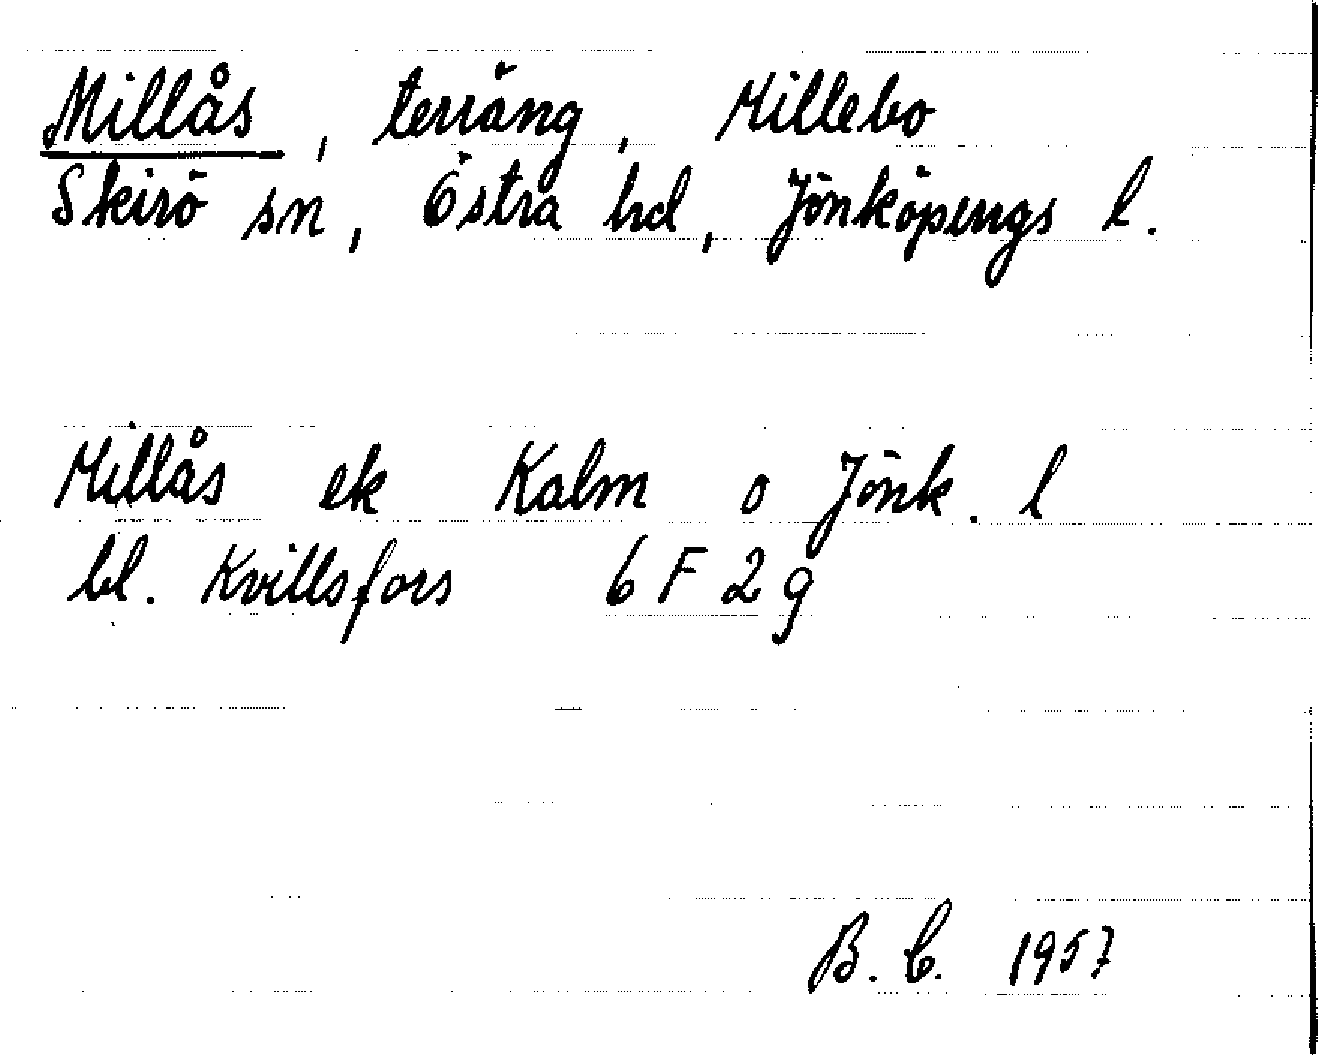 Millås, terräng, Millebo
Skirö sn, Östra hd, Jönköpings l.
Millås ek Kalm o Jönk. l
bl. Kvillsfors 6 F 2 g
B. C. 1957